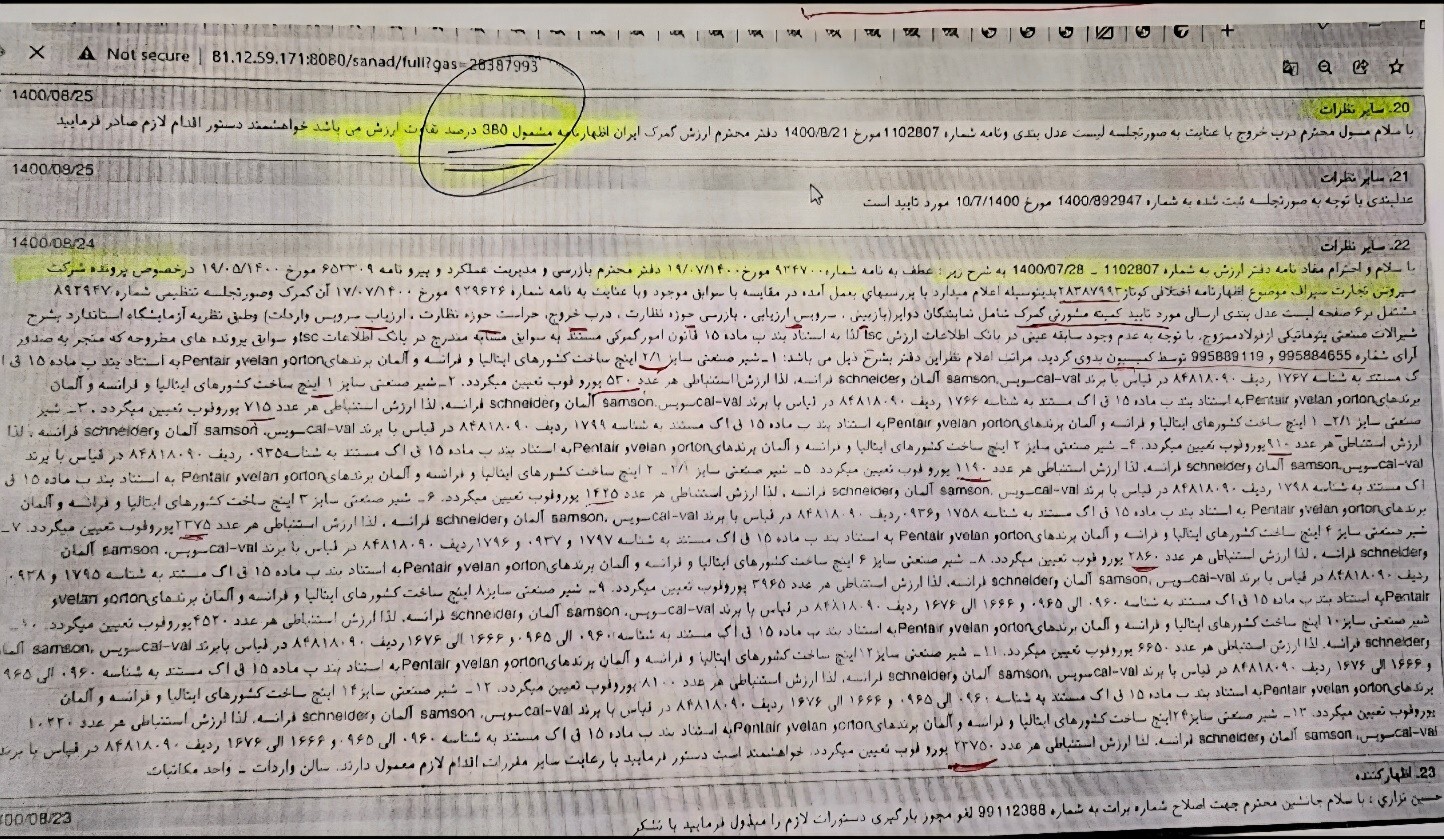 Not secure | 81.12.59.171:8080/sanad/full?gas=28387993
20. سایر نظرات
1400/08/25
با سلام مسول محترم درب خروج با عنایت به صورتجلسه لیست عدل بندی ونامه شماره 1102807 مورخ 1400/8/21 دفتر محترم ارزش گمرک ایران اظهارنامه مشمول 380 درصد تفاوت ارزش می باشد خواهشمند دستور اقدام لازم صادر فرمایید
21. سایر نظرات
1400/08/25
عدلبندی با توجه به صورتجلسه ثبت شده به شماره 1400/892947 مورخ 10/7/1400 مورد تایید است
22. سایر نظرات
1400/08/24
با سلام و احترام مفاد نامه دفتر ارزش به شماره 1102807 _ 1400/07/28 به شرح زیر : عطف به نامه شماره ۹۲۴۷۰۰ مورخ ۱۹/۰۷/۱۴۰۰ دفتر محترم بازرسی و مدیریت عملکرد و پیرو نامه ۶۵۳۳۰۹ مورخ ۱۹/۰۵/۱۴۰۰ درخصوص پرونده شرکت
سیروش تجارت سیراف موضوع اظهارنامه اختلافی کوتاژ ۲۸۳۸۷۹۹۳ بدینوسیله اعلام میدارد با بررسیهای بعمل آمده در مقایسه با سوابق موجود وبا عنایت به نامه شماره ۹۲۹۶۲۶ مورخ ۱۷/۰۷/۱۴۰۰ آن گمرک وصورتجلسه تنظیمی شماره ۸۹۲۹۴۷
مشتمل بر ۶ صفحه لیست عدل بندی ارسالی مورد تایید کمیته مشورتی گمرک شامل نمایندگان دوایر(بازبینی ، سرویس ارزیابی ، بازرسی حوزه نظارت ، درب خروج، حراست حوزه نظارت ، ارزیاب سرویس واردات) وطبق نظریه آزمایشگاه استاندارد بشرح
شیرآلات صنعتی پنوماتیکی ازفولادممزوج، با توجه به عدم وجود سابقه عینی در بانک اطلاعات ارزش tsc لذا به استناد بند ب ماده ۱۵ قانون امورگمرکی مستند به سوابق مشابه مندرج در بانک اطلاعات tscو سوابق پرونده های مطروحه که منجر به صدور
آرای شماره 995884655 و 995889119 توسط کمیسیون بدوی گردید، مراتب اعلام نظراین دفتر بشرح ذیل می باشد: ۱_ شیر صنعتی سایز ۲/۱ اینچ ساخت کشورهای ایتالیا و فرانسه و آلمان برندهایortonو velanو Pentairبه استناد بند ب ماده ۱۵ ق ا
گ مستند به شناسه ۱۷۶۷ ردیف ۸۴۸۱۸۰۹۰ در قیاس با برند cal-valسویس, samson آلمان وschneider فرانسه، لذا ارزش استنباطی هر عدد ۵۳۰ یورو فوب تعیین میگردد. ۲_شیر صنعتی سایز ۱ اینچ ساخت کشورهای ایتالیا و فرانسه و آلمان
برندهایortonو velanو Pentairبه استناد بند ب ماده ۱۵ ق اگ مستند به شناسه ۱۷۶۶ ردیف ۸۴۸۱۸۰۹۰ در قیاس با برند cal-valسویس, samson آلمان وschneider فرانسه، لذا ارزش استنباطی هر عدد ۷۱۵ یوروفوب تعیین میگردد. ۳_ شیر
صنعتی سایز ۲/۱_ ۱ اینچ ساخت کشورهای ایتالیا و فرانسه و آلمان برندهایortonو velanو Pentairبه استناد بند ب ماده ۱۵ ق اگ مستند به شناسه ۱۷۹۹ ردیف ۸۴۸۱۸۰۹۰ در قیاس با برند cal-valسویس, samson آلمان وschneider فرانسه ، لذا
ارزش استنباطی هر عدد ۹۱۰ یوروفوب تعیین میگردد. ۴_ شیر صنعتی سایز ۲ اینچ ساخت کشورهای ایتالیا و فرانسه و آلمان برندهایortonو velanو Pentairبه استناد بند ب ماده ۱۵ ق اگ مستند به شناسه۰۹۳۵ ردیف ۸۴۸۱۸۰۹۰ در قیاس با برند
cal-valسویس, samson آلمان وschneider فرانسه، لذا ارزش استنباطی هر عدد ۱۱۹۰ یورو فوب تعیین میگردد. ۵_ شیر صنعتی سایز ۱/۱_ ۲ اینچ ساخت کشورهای ایتالیا و فرانسه و آلمان برندهایortonو velanو Pentair به استناد بند ب ماده ۱۵ ق
اگ مستند به شناسه ۱۷۹۸ ردیف ۸۴۸۱۸۰۹۰ در قیاس با برند cal-valسویس, samson آلمان وschneider فرانسه ، لذا ارزش استنباطی هر عدد ۱۴۲۵ یوروفوب تعیین میگردد. ۶_ شیر صنعتی سایز ۳ اینچ ساخت کشورهای ایتالیا و فرانسه و آلمان
برندهایortonو velanو Pentair به استناد بند ب ماده ۱۵ ق اگ مستند به شناسه ۱۷۵۸ و۰۹۳۶ ردیف ۸۴۸۱۸۰۹۰ در قیاس با برند cal-valسویس, samson آلمان وschneider فرانسه ، لذا ارزش استنباطی هر عدد ۲۳۷۵یوروفوب تعیین میگردد. ۷_
شیر صنعتی سایز ۴ اینچ ساخت کشورهای ایتالیا و فرانسه و آلمان برندهایortonو velanو Pentair به استناد بند ب ماده ۱۵ ق اگ مستند به شناسه ۱۷۹۷ و ۰۹۳۷ و ۱۷۹۶ردیف ۸۴۸۱۸۰۹۰ در قیاس با برند cal-valسویس, samson آلمان
وschneider فرانسه ، لذا ارزش استنباطی هر عدد ۲۸۶۰ یورو فوب تعیین میگردد. ۸_ شیر صنعتی سایز ۶ اینچ ساخت کشورهای ایتالیا و فرانسه و آلمان برندهایortonو velanو Pentairبه استناد بند ب ماده ۱۵ ق اگ مستند به شناسه ۱۷۹۵ و ۰۹۳۸
ردیف ۸۴۸۱۸۰۹۰ در قیاس با برند cal-valسویس, samson آلمان وschneider فرانسه، لذا ارزش استنباطی هر عدد ۳۹۶۵ یوروفوب تعیین میگردد. ۹_ شیر صنعتی سایز۸ اینچ ساخت کشورهای ایتالیا و فرانسه و آلمان برندهایortonو velanو
Pentairبه استناد بند ب ماده ۱۵ ق اگ مستند به شناسه ۰۹۶۰ الی ۰۹۶۵ و ۱۶۶۶ الی ۱۶۷۶ ردیف ۸۴۸۱۸۰۹۰ در قیاس با برند cal-valسویس, samson آلمان وschneider فرانسه، لذا ارزش استنباطی هر عدد ۴۵۲۰یوروفوب تعیین میگردد. ۱۰_
شیر صنعتی سایز۱۰ اینچ ساخت کشورهای ایتالیا و فرانسه و آلمان برندهایortonو velanو Pentairبه استناد بند ب ماده ۱۵ ق اگ مستند به شناسه۰۹۶۰ الی ۰۹۶۵ و ۱۶۶۶ الی ۱۶۷۶ردیف ۸۴۸۱۸۰۹۰ در قیاس بابرند cal-valسویس, samson
وschneider فرانسه، لذا ارزش استنباطی هر عدد ۶۶۵۰ یوروفوب تعیین میگردد. ۱۱_ شیر صنعتی سایز۱۲اینچ ساخت کشورهای ایتالیا و فرانسه و آلمان برندهایortonو velanو Pentairبه استناد بند ب ماده ۱۵ ق اگ مستند به شناسه ۰۹۶۰ الی ۰۹۶۵
و ۱۶۶۶ الی ۱۶۷۶ ردیف ۸۴۸۱۸۰۹۰ در قیاس با برند cal-valسویس, samson آلمان وschneider فرانسه، لذا ارزش استنباطی هر عدد ۸۱۰۰ یوروفوب تعیین میگردد. ۱۲_ شیر صنعتی سایز۱۴ اینچ ساخت کشورهای ایتالیا و فرانسه و آلمان
برندهایortonو velanو Pentairبه استناد بند ب ماده ۱۵ ق اگ مستند به شناسه ۰۹۶۰ الی ۰۹۶۵ و ۱۶۶۶ الی ۱۶۷۶ ردیف ۸۴۸۱۸۰۹۰ در قیاس با برند cal-valسویس, samson آلمان وschneider فرانسه، لذا ارزش استنباطی هر عدد ۱۰۲۲۰
یوروفوب تعیین میگردد. ۱۳_ شیر صنعتی سایز۲۴اینچ ساخت کشورهای ایتالیا و فرانسه و آلمان برندهایortonو velanو Pentairبه استناد بند ب ماده ۱۵ ق اگ مستند به شناسه ۰۹۶۰ الی ۰۹۶۵ و ۱۶۶۶ الی ۱۶۷۶ ردیف ۸۴۸۱۸۰۹۰ در قیاس با برند
cal-valسویس, samson آلمان وschneider فرانسه، لذا ارزش استنباطی هر عدد ۲۳۷۵۰ یورو فوب تعیین میگردد. خواهشمند است دستور فرمایید با رعایت سایر مقررات اقدام لازم معمول دارند. سالن واردات _ واحد مکاتبات
23. اظهارکننده
00/08/23
حسین نزاری : با سلام جانشین محترم جهت اصلاح شماره برات به شماره 99112388 لغو مجوز بارگیری دستورات لازم را مبذول فرمایید با تشکر